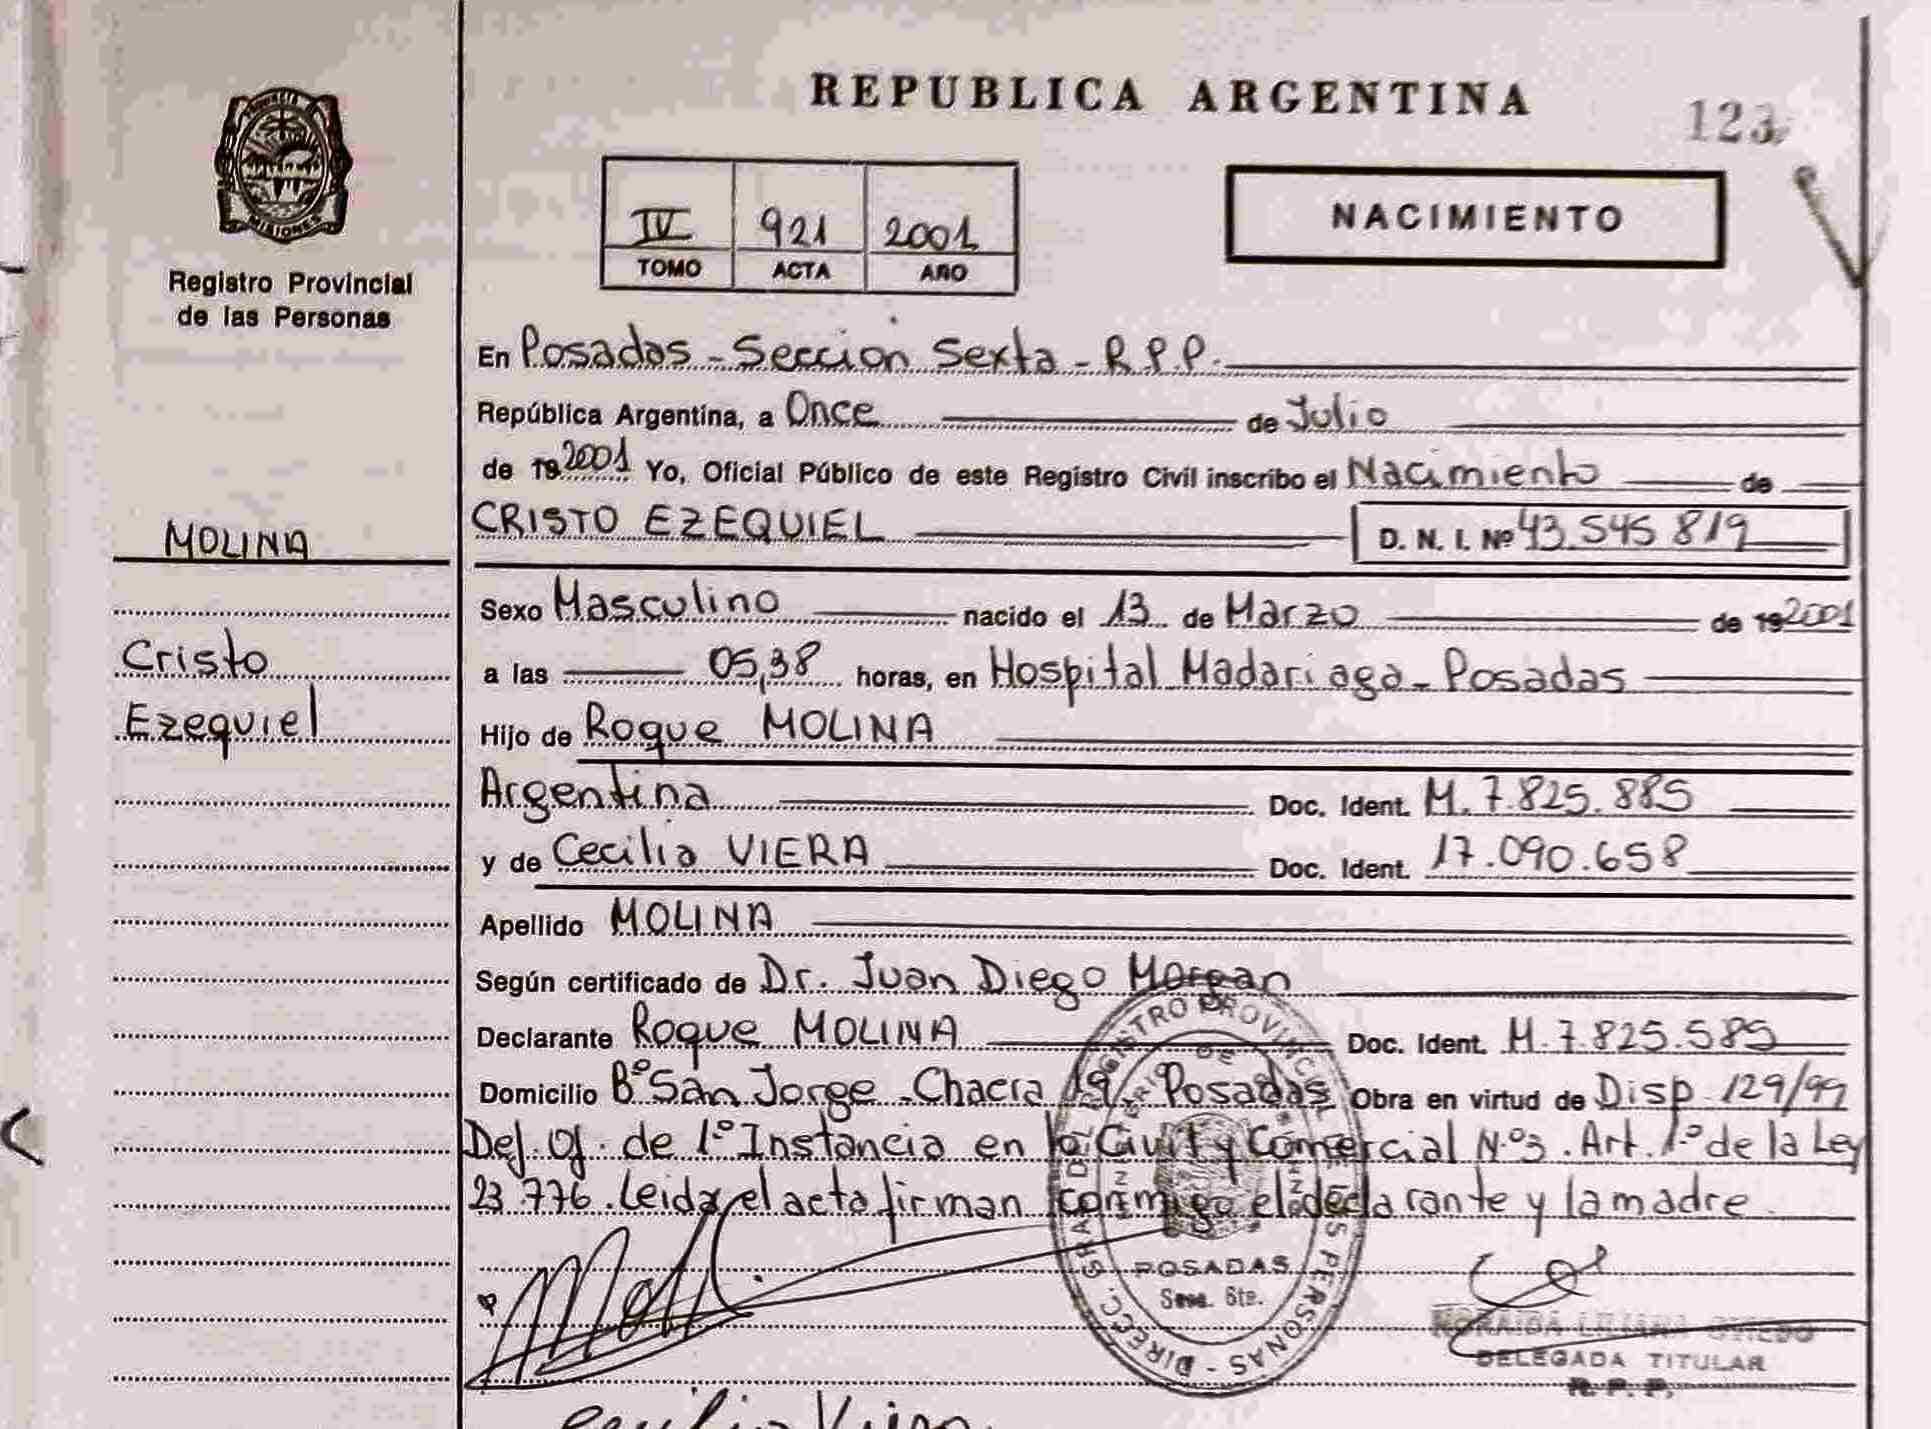 REPUBLICA ARGENTINA
123
PROVINCIA DE
MISIONES
Registro Provincial
de las Personas
IV 921 2001
TOMO ACTA AÑO
NACIMIENTO
En Posadas - Seccion Sexta - R.P.P.
República Argentina, a Once de Julio
de 19 2001 Yo, Oficial Público de este Registro Civil inscribo el Nacimiento de
MOLINA
CRISTO EZEQUIEL D. N. I. Nº 43.545 819
Sexo Masculino nacido el 13 de Marzo de 19 2001
Cristo
a las 05,38 horas, en Hospital Madariaga - Posadas
Ezequiel
Hijo de Roque MOLINA
Argentina Doc. Ident. M. 7.825.885
y de Cecilia VIERA Doc. Ident. 17.090.658
Apellido MOLINA
Según certificado de Dr. Juan Diego Morgan
Declarante Roque MOLINA Doc. Ident. M. 7.825.585
Domicilio Bº San Jorge - Chacra 19 - Posadas Obra en virtud de Disp. 129/99
Def. Of. de 1º Instancia en lo Civil y Comercial N.º 3. Art. 1.º de la Ley
23.776. Leida el acta firman conmigo el declarante y la madre.
REGISTRO PROVINCIAL DE LAS PERSONAS - DIREC. GRAL.
POSADAS
Secc. 6ta.
DELEGADA TITULAR
R. P. P.
Cecilia Viera.